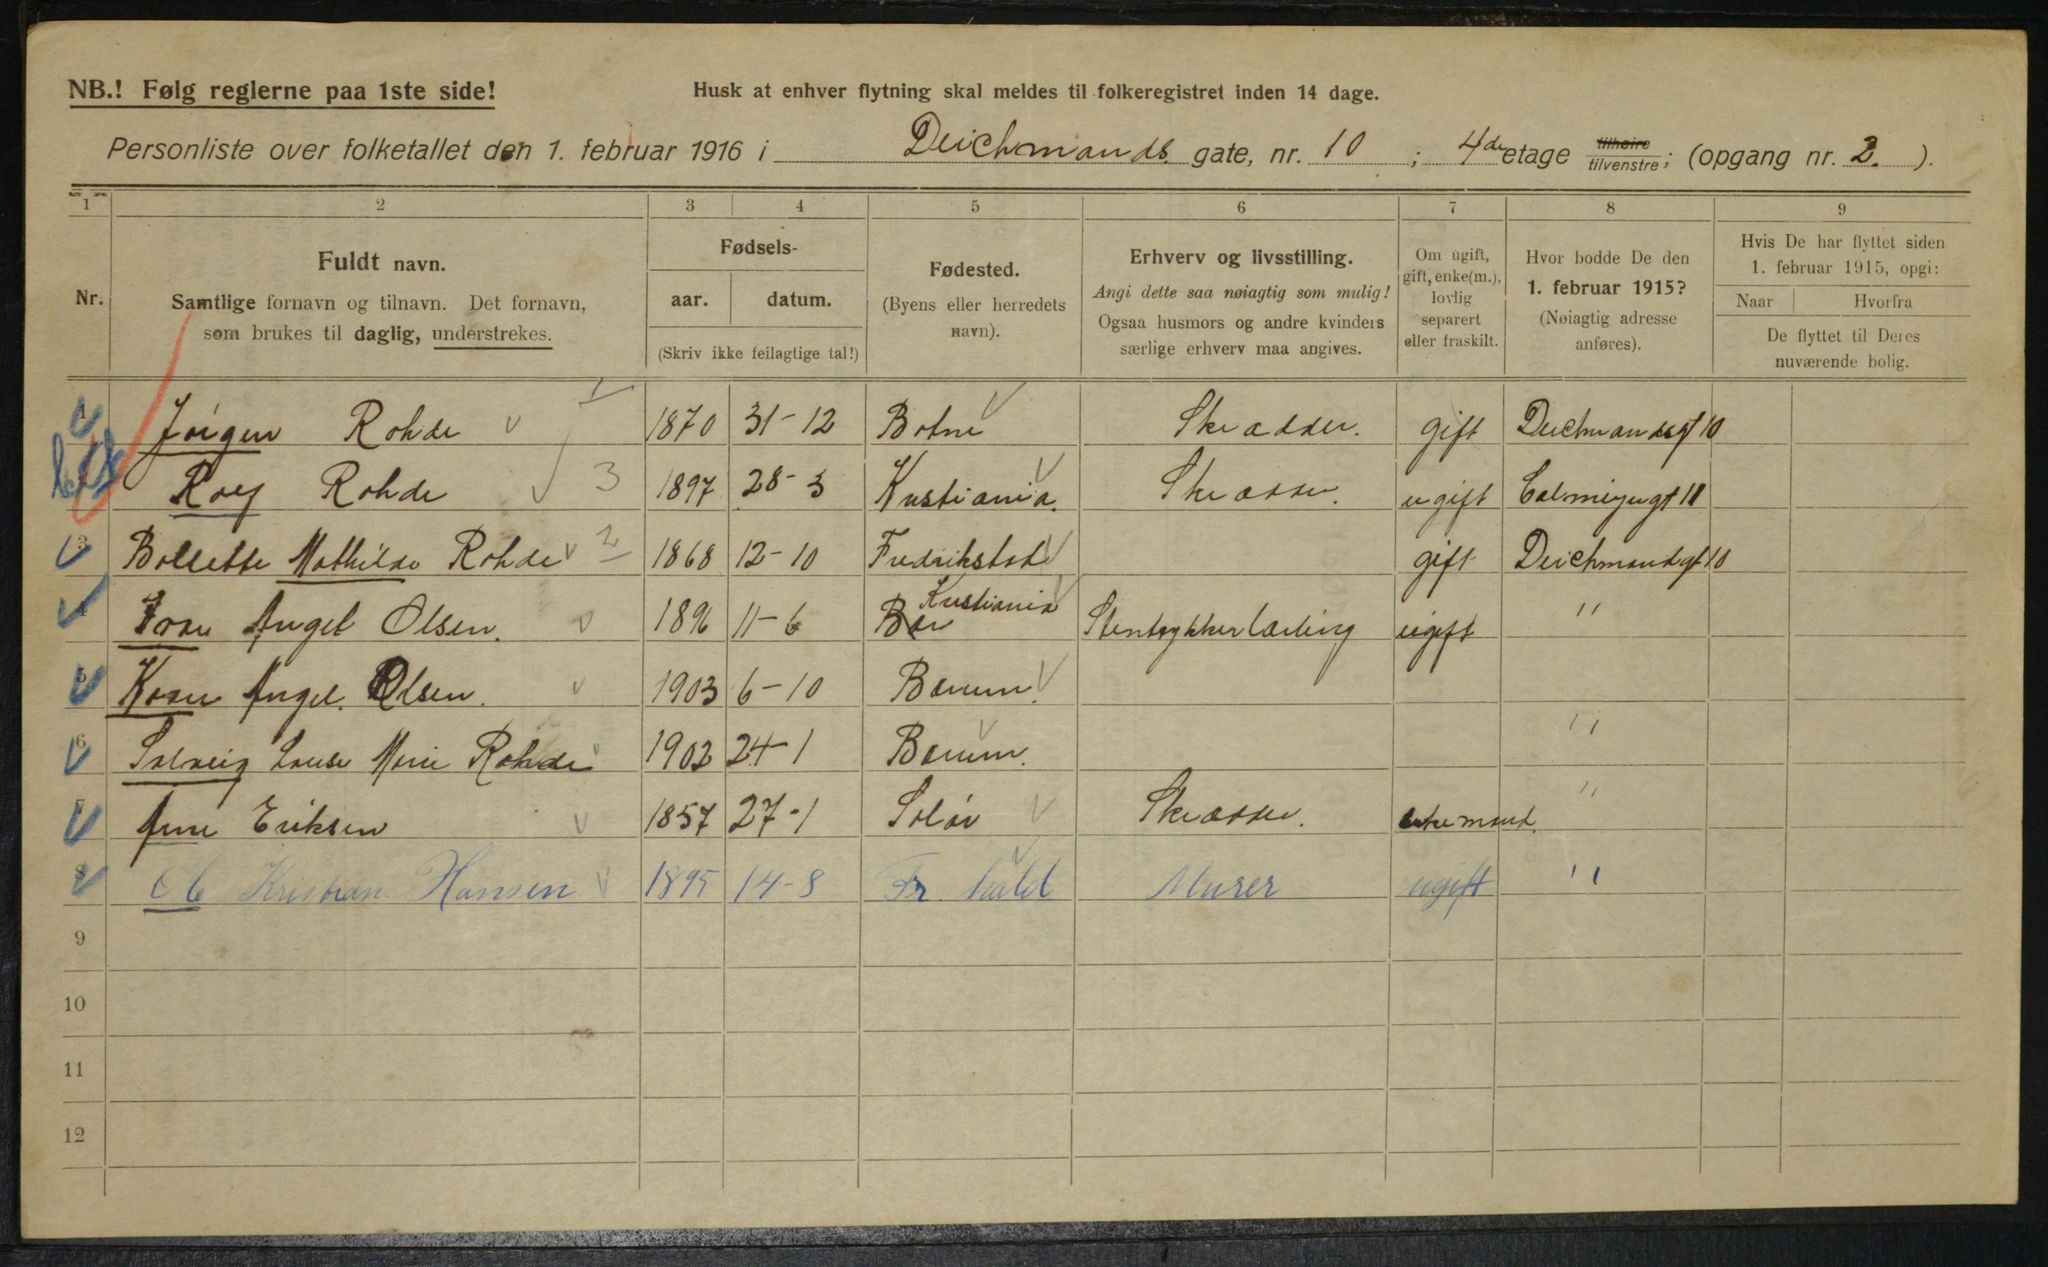 NB.! Følg reglerne paa 1ste side!
Husk at enhver flytning skal meldes til folkeregistret inden 14 dage.
Personliste over folketallet den 1. februar 1916 i Deichmands gate, nr. 10 ; 4de etage tilhøire tilvenstre; (opgang nr. 2. ).
1 2 3 4 5 6 7 8 9
Nr.
Fuldt navn.
Samtlige fornavn og tilnavn. Det fornavn,
som brukes til daglig, understrekes.
Fødsels-
aar. datum.
(Skriv ikke feilagtige tal!)
Fødested.
(Byens eller herredets
navn).
Erhverv og livsstilling.
Angi dette saa nøiagtig som mulig!
Ogsaa husmors og andre kvinders
særlige erhverv maa angives.
Om ugift,
gift, enke(m.),
lovlig
separert
eller fraskilt.
Hvor bodde De den
1. februar 1915?
(Nøiagtig adresse
anføres).
Hvis De har flyttet siden
1. februar 1915, opgi:
Naar Hvorfra
De flyttet til Deres
nuværende bolig.
Jørgen Rohde 1 1870 31-12 Botne Skrædder. gift Deichmandsgt 10
Rolf Rohde 3 1897 28-3 Kristiania. Skrædder. ugift 11
3 Bolette Mathilde Rohde 2 1868 12-10 Fredrikstad gift Deichmandgt 10
4 Angel Olsen. 1896 11-6 Kristiania Stentrykkerlærling ugift "
5 Angel. Olsen. 1903 6-10 Bærum.
6 Solveig Louise Marie Rohde 1902 24-1 Bærum. "
7 Arne Eriksen 1857 27-1 Solør Skrædder. enkemand. "
8 Ole Kristian Hansen 1895 14-8 Fr. hald Murer ugift "
9
10
11
12